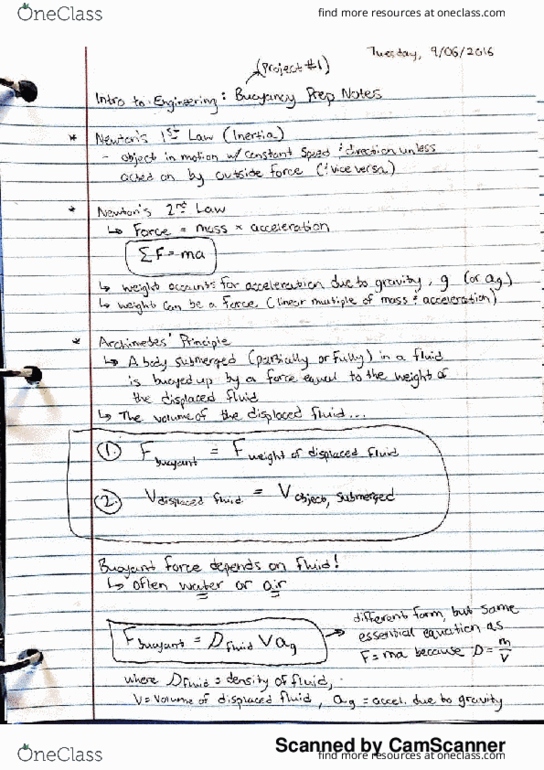 OneClass
find more resources at oneclass.com
Tuesday, 9/06/2016
(Project #1)
Intro to Engineering: Buoyancy Prep Notes
* Newton's 1st Law (Inertia)
- object in motion w/ constant speed & direction unless
acted on by outside force (& vice versa)
* Newton's 2nd Law
↳ Force = mass × acceleration
ΣF=ma
↳ weight accounts for acceleration due to gravity, g (or ag)
↳ weight can be a force (linear multiple of mass & acceleration)
* Archimedes' Principle
↳ A body submerged (partially or fully) in a fluid
is buoyed up by a force equal to the weight of
the displaced fluid
↳ The volume of the displaced fluid...
1. F buoyant = F weight of displaced fluid
2. V displaced fluid = V object, submerged
Buoyant force depends on fluid!
↳ often water or air
F buoyant = D fluid V ag
different form, but same
essential equation as
F=ma because D = m/V
where D fluid = density of fluid,
V = volume of displaced fluid, ag = accel. due to gravity
Scanned by CamScanner
OneClass
find more resources at oneclass.com